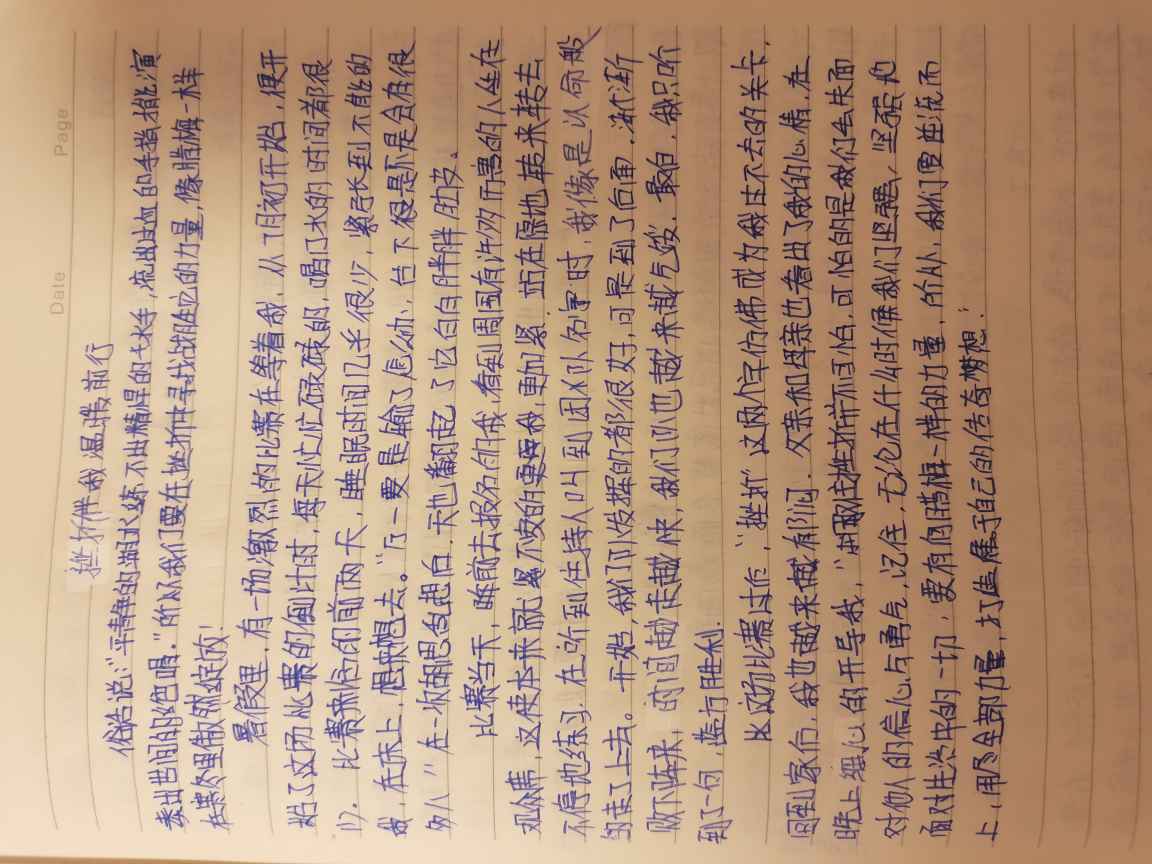 Date
Page
挫折伴我温暖前行
俗话说:"平静的湖水练不出精悍的水手,流出过血的手指才能演
奏出世间的绝唱。"所以我们要在挫折中寻找战胜它的力量,像腊梅一样
在寒冬里傲然绽放!
暑假里,有一场激烈的比赛在等着我,从7月初开始,便开
始了这场比赛的倒计时,每天忙忙碌碌的,喝口水的时间都很
少。比赛来临的前两天,睡眠时间几乎很少,紧张到不能的
我,在床上,想来想去。"万一要是输了怎么办,台下很是不是会有很
多人"在一次胡思乱想后,天也翻起了它白白胖胖肚皮。
比赛当天,跑前去报名的我,看到周围有许多的人坐在
观众席,这使本来就紧不安的我,更加紧,站在原地转来转去
不停地练习.在听到主持人叫到团队名字时,我像是认命般
的走了上去。开始,我们发挥的都很好,可是到了后面,渐渐
败下阵来,时间越走越快,我们也越来越气馁.最后,我只听
到了一句,蓝方胜利.
这场比赛过后,"挫折"这两个字仿佛成为我过不去的关卡,
回到家后,我也越来越郁闷.父亲和母亲也看出了我的心情,在
晚上细心的开导我,"挫折并不可怕,可怕的是我们会失去面
对他人的信心与勇气,记住,无论在什么时候我们坚强、坚强地
面对生活中的一切,要有向腊梅一样的力量,所以,我们要逆流而
上,用尽全部力量,打造属于自己的传奇梦想!